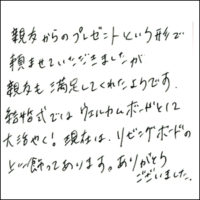 親友からのプレゼントという形で
頼ませていただきましたが
親友も満足してくれたようです。
結婚式ではウェルカムボードとして
大活やく！現在は、リビングボードの
上に飾ってあります。ありがとう
ございました。